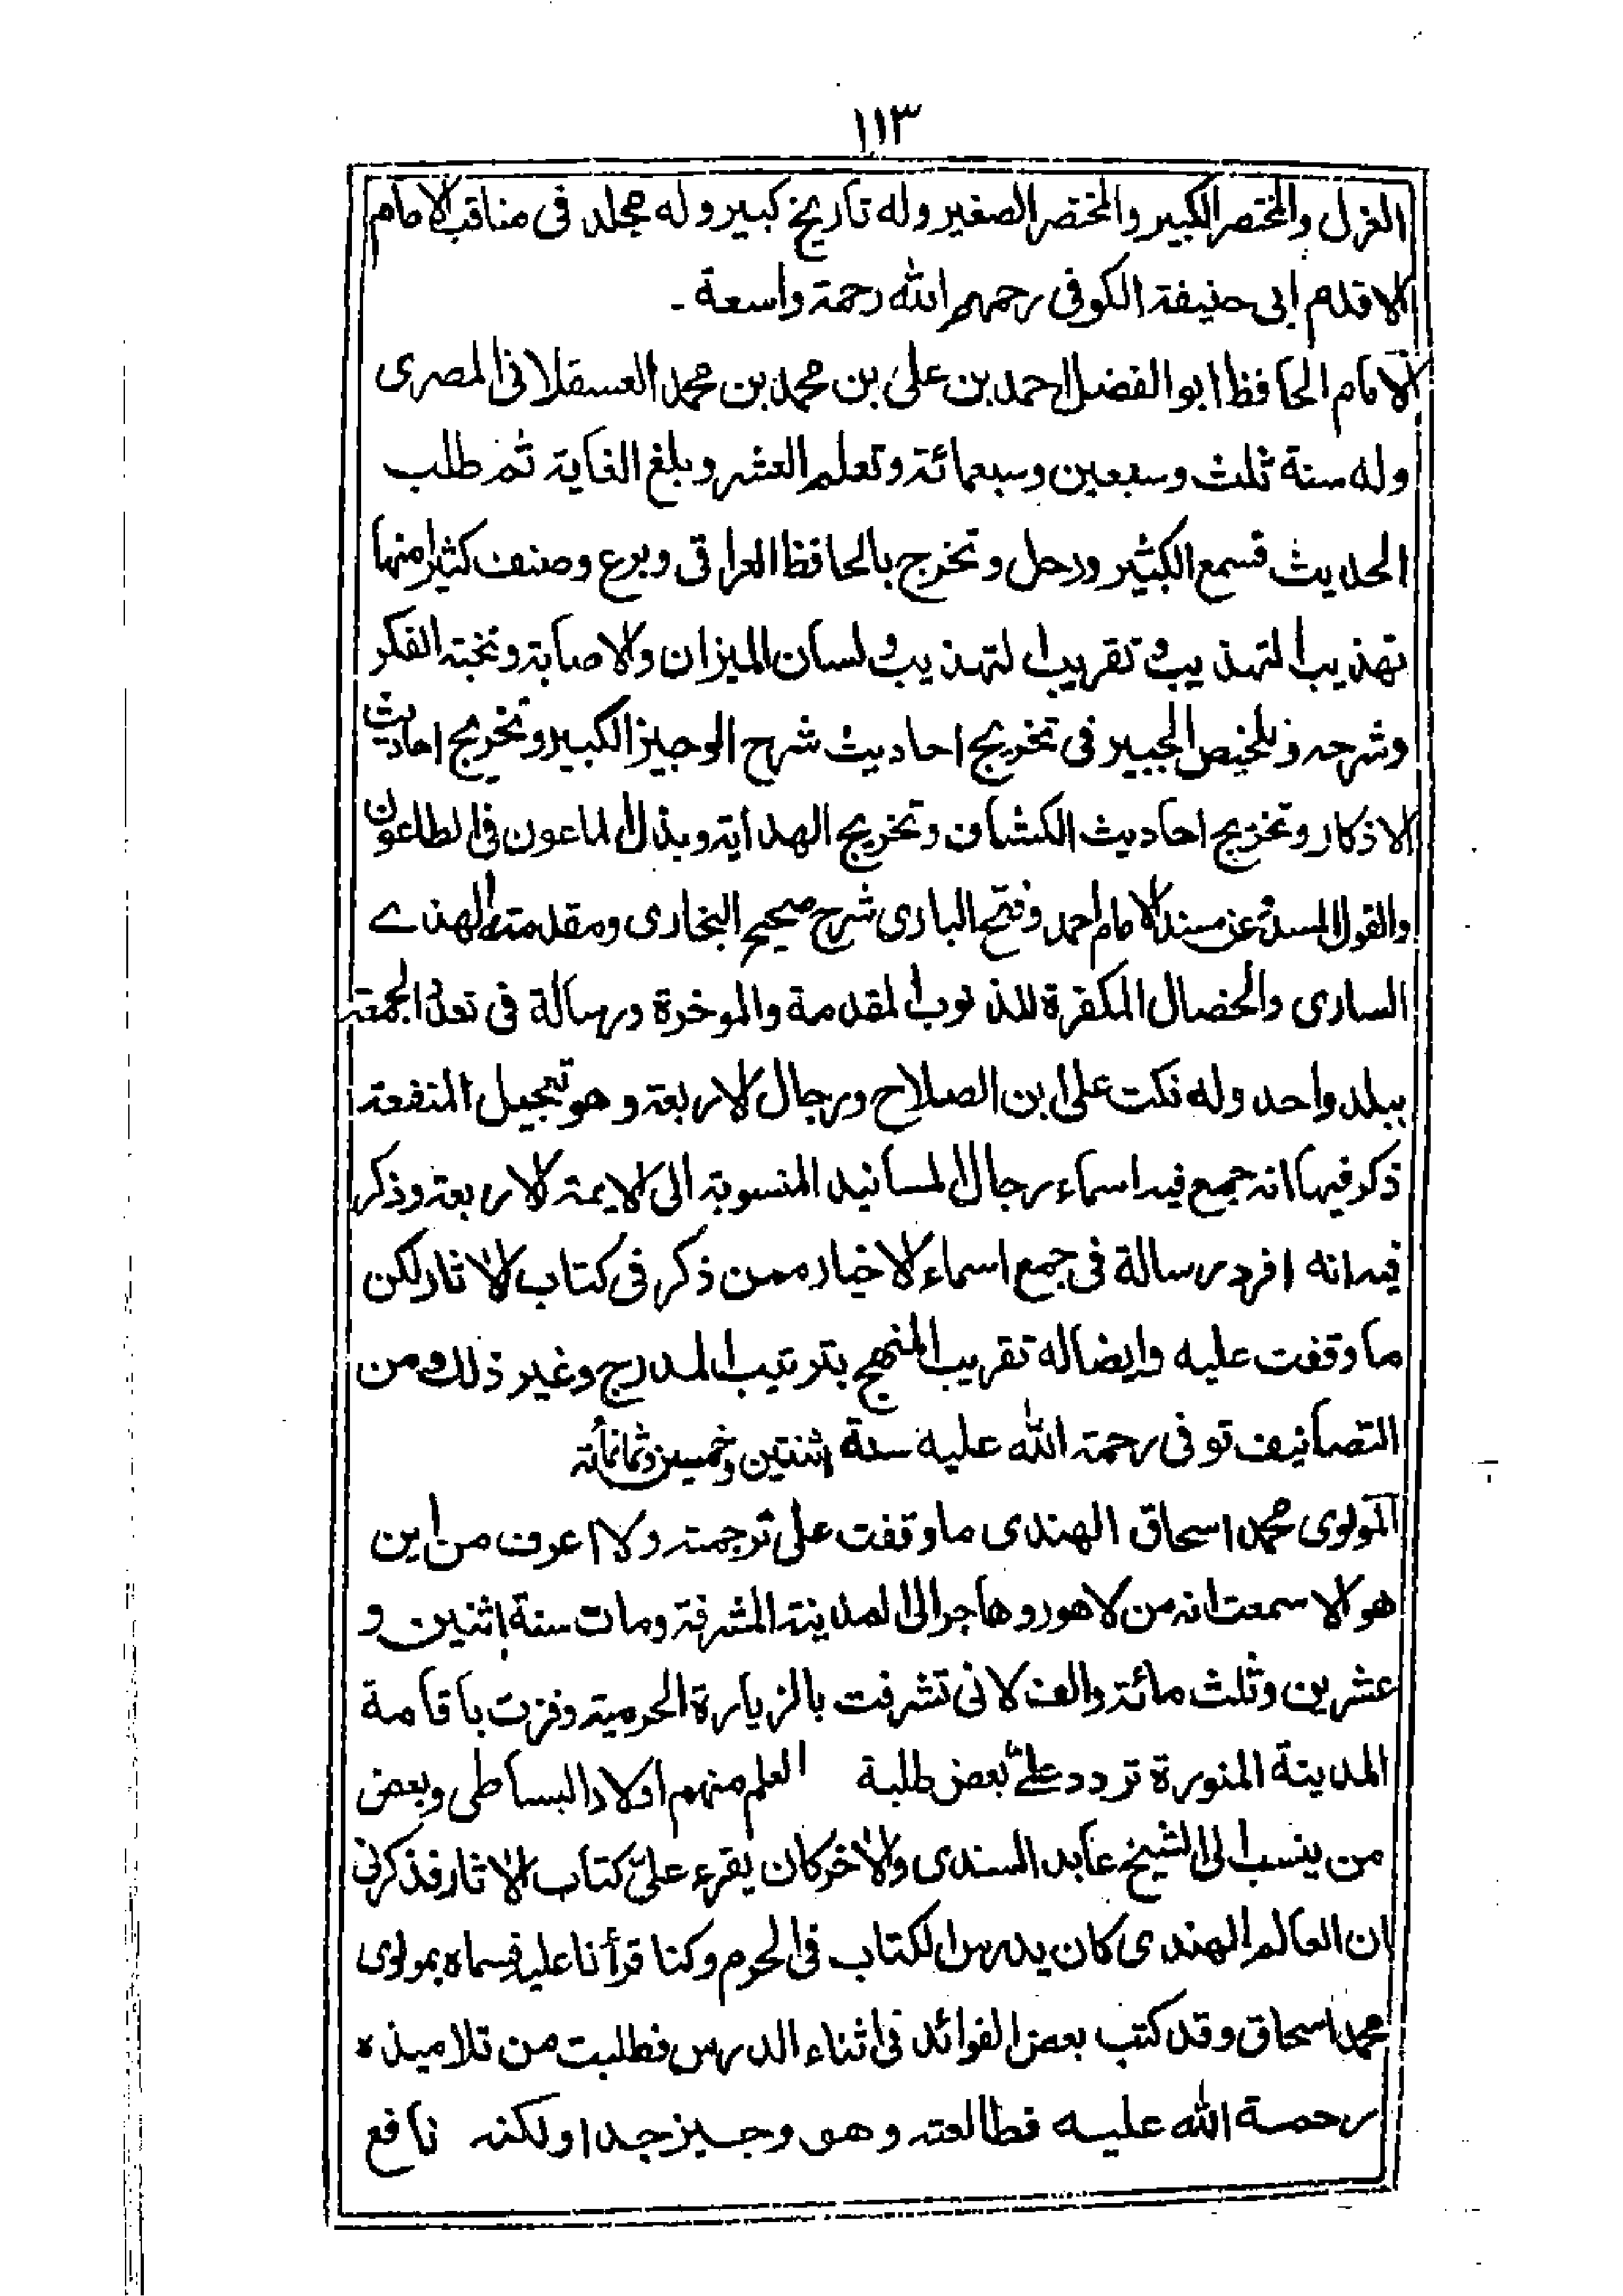 ١١٣
الغزل والمختصر الكبير والمختصر الصغير وله تاريخ كبير وله مجلد فى مناقب الامام
الاقدم ابى حنيفة الكوفى رحمهم الله رحمة واسعة ۔
الامام الحافظ ابو الفضل احمد بن على بن محمد بن محمد العسقلانى المصرى
وله سنة ثلث وسبعين وسبعمائة وتعلم العشر وبلغ الغاية ثم طلب
الحديث فسمع الكثير ورحل وتخرج بالحافظ العراقى وبرع وصنف كثيرا منها
تهذيب التهذيب وتقريب التهذيب ولسان الميزان والاصابة ونخبة الفكر
وشرحه وتلخيص الحبير فى تخريج احاديث شرح الوجيز الكبير وتخريج احاديث
الاذكار وتخريج احاديث الكشاف وتخريج الهداية وبذل الماعون فى الطاعون
والقول المسدد عن مسند الامام احمد وفتح البارى شرح صحيح البخارى ومقدمته الهدے
السارى والخصال المكفرة للذنوب المقدمة والموخرة ورسالة فى تعدد الجمعة
ببلد واحد وله نكت على ابن الصلاح ورجال الاربعة وهو تعجيل المنفعة
ذكر فيها انه جمع فيه اسماء رجال المسانيد المنسوبة الى الايمة الاربعة وذكر
فيه انه افرد رسالة فى جمع اسماء الاخيار ممن ذكر فى كتاب الاثار لكن
ما وقفت عليه وايضا له تقريب المنهج بترتيب المدرج وغير ذلك ومن
التصانيف توفى رحمة الله عليه سنة اثنتين وخمسين وثمانمأئة
المولوى محمد اسحاق الهندى ما وقفت على ترجمته ولا اعرف من اين
هو الا سمعت انه من لاهور وهاجر الى المدينة المشرفة ومات سنة اثنين و
عشرين وثلث مائة والف لانى تشرفت بالزيارة الحرمية وفزت باقامة
المدينة المنورة تردد علىّ بعض طلبة العلم منهم اولاد البساطى وبعض
من ينسب الى الشيخ عابد السندى والاخر كان يقرء علىّ كتاب الاثار فذكرنى
ان العالم الهندى كان يدرس الكتاب فى الحرم وكنا قرأنا عليه فسماه بمولوى
محمد اسحاق وقد كتب بعض الفوائد فى اثناء الدرس فطلبت من تلاميذه
رحمة الله عليه فطالعته وهو وجيز جدا ولكنه نافع